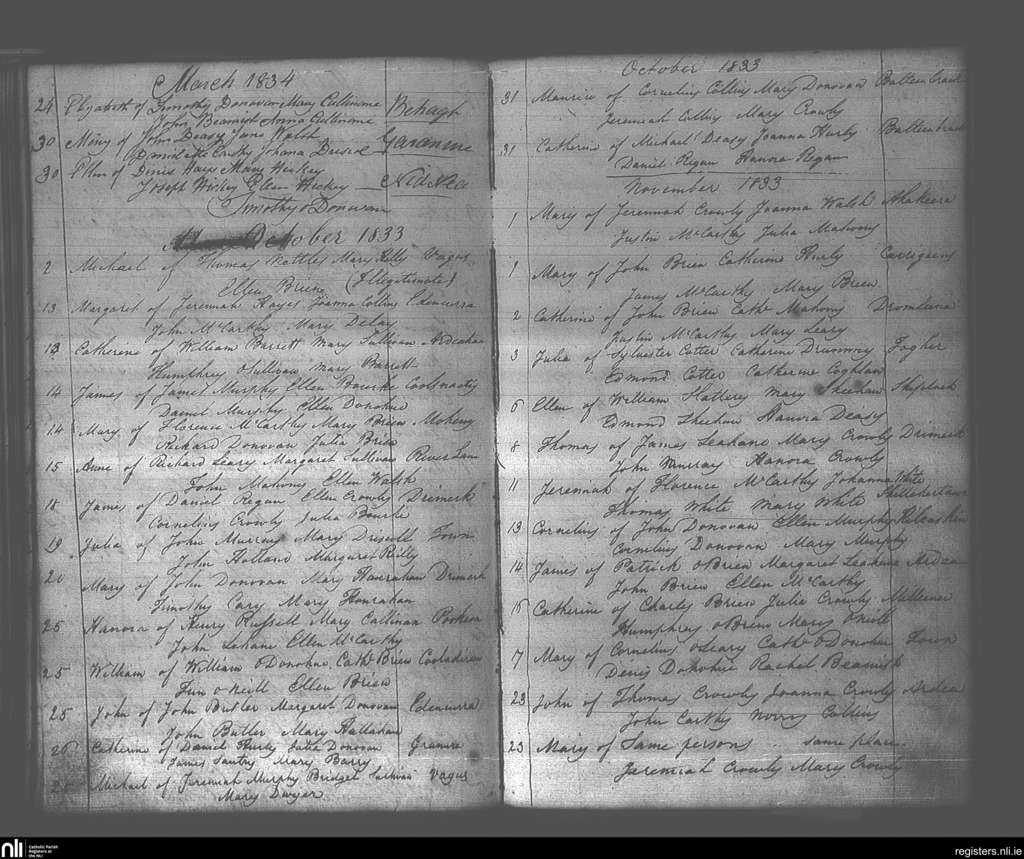 March 1834
24 Elizabeth of Timothy Donovan Mary Cullinane Behagh
John Beamish Anna Cullinane
30 Mary of John Deasy Jane Walsh Garanure
Daniel McCarthy Johana
30 Ellen of Denis Hays Mary Hickey
Joseph Hickey Ellen Hickey
Timothy Donovan
October 1833
2 Michael of Thomas Nettles Mary Kelly Vagus
Ellen Briene (Illegitimate)
13 Margaret of Jeremiah Hayes Joanna Collins Edencurra
John McCarthy Mary Delay
13 Catherine of William Barrett Mary Sullivan
Humphrey O'Sullivan Mary Barrett
14 James of James Murphy Ellen Bourke
Daniel Murphy Ellen Donohue
14 Mary of Florence McCarthy Mary Brien
Richard Donovan Julia Brien
15 Anne of Richard Leary Margaret Sullivan River Lane
John Mahony Ellen Walsh
18 James of Daniel Regan Ellen Crowly Drimerk
Cornelius Crowly Julia Bourke
19 Julia of John Murray Mary Driscoll Town
John Holland Margaret Reilly
20 Mary of John Donovan Mary Hanrahan Drimerk
Timothy Cary Mary Honrahan
25 Hanora of Henry Russell Mary Callinan
John Lehane Ellen McCarthy
25 William of William ODonohue Cathe Brien
Tim oNeill Ellen Brien
25 John of John Butler Margaret Donovan Edencurra
John Butler Mary Hallahan
26 Catherine of Daniel Hurly Julia Donovan
James Santry Mary Barry
Michael of Jeremiah Murphy Bridget Sullivan Vagus
Mary Dwyer
October 1833
31 Maurice of Cornelius Collins Mary Donovan
Jeremiah Collins Mary Crowly
31 Catherine of Michael Deasy Joanna Hurly
Daniel Regan Hanora Regan
November 1833
1 Mary of Jeremiah Crowly Joanna Walsh Ahakeera
Justin McCarthy Julia Mahony
1 Mary of John Brien Catherine Hurly
James McCarthy Mary Brien
2 Catherine of John Brien Cathe Mahony
Justin McCarthy Mary Leary
3 Julia of Sylvester Cotter Catherine Fogher
Edmond Cotter Catherine Coghlan
6 Ellen of William Slattery Mary Sheehan
Edmond Sheehan Hanora Deasy
8 Thomas of James Leahane Mary Crowly Drimerk
John Murray Hanora Crowly
11 Jeremiah of Florence McCarthy Johanna White
Thomas White Mary White
13 Cornelius of John Donovan Ellen Murphy
Cornelius Donovan Mary Murphy
14 James of Patrick OBrien Margaret Leahane
John Brien Ellen McCarthy
Catherine of Charles Brien Julia Crowly
Humphry OBrien Mary ONeill
7 Mary of Cornelius OLeary Cathe ODonohue Town
Denis Donohue Rachel Beamish
23 John of Thomas Crowly Joanna Crowly
John Carthy Norry Collins
23 Mary of Same persons same place
Jeremiah Crowly Mary Crowly
nli
Catholic Parish
Registers at
the NLI
registers.nli.ie